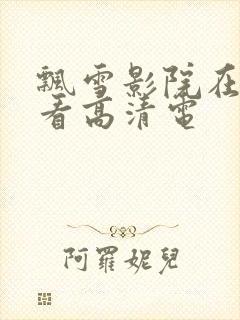 飄雪影院在
看高清電
阿羅妮兒